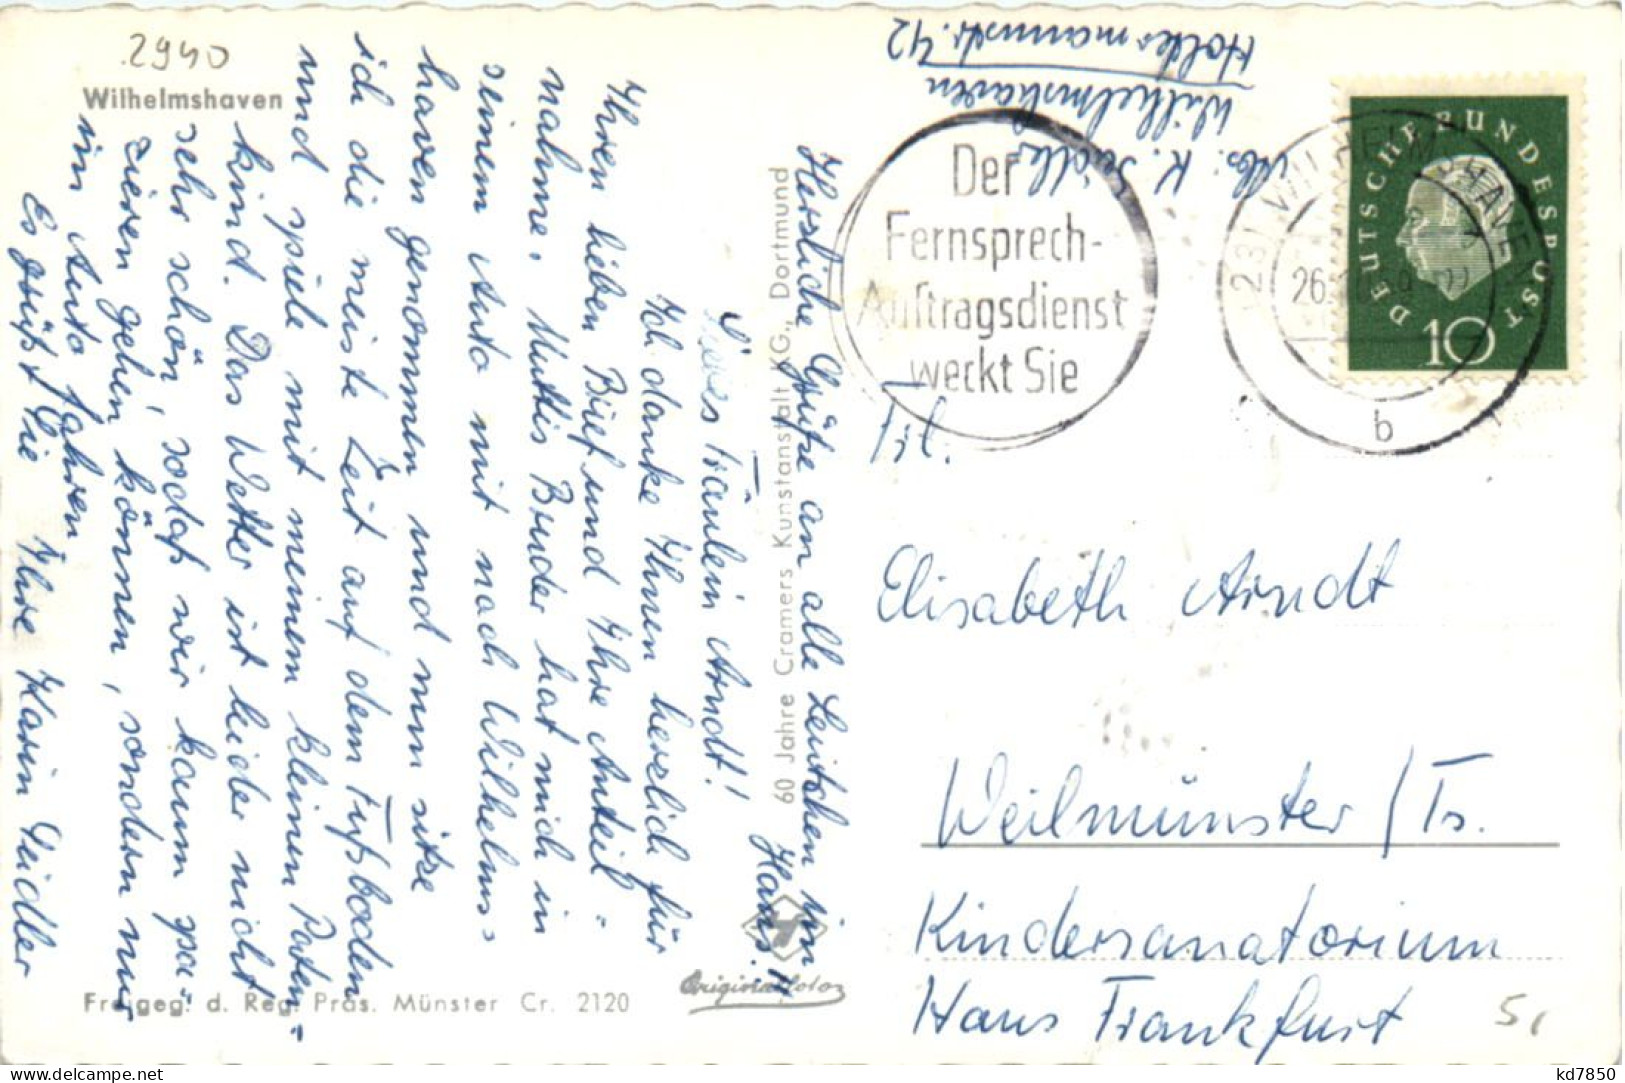 2940
Wilhelmshaven
Liebes Fräulein Arndt!
Ich danke Ihnen herzlich für
Ihren lieben Brief und Ihre Anteil=
nahme. Muttis Bruder hat mich in
seinem Auto mit nach Wilhelms=
haven genommen und nun sitze
ich die meiste Zeit auf dem Fußboden
und spiele mit meinem kleinen Paten=
kind. Das Wetter ist leider nicht
sehr schön, sodaß wir kaum spa=
zieren gehen können, sondern nur
im Auto fahren
Es grüßt Sie Ihre Karin Seidler
Herzliche Grüße an alle Leutchen im
Haus!
60 Jahre Cramers Kunstanstalt KG., Dortmund
Original Foto
Freigeg. d. Reg. Präs. Münster Cr. 2120
Abs: K. Seidler
Wilhelmshaven
Holtermannstr. 42
Der
Fernsprech-
Auftragsdienst
weckt Sie
(23) WILHELMSHAVEN
26.
b
DEUTSCHE BUNDESPOST
10
Frl.
Elisabeth Arndt
Weilmünster / Ts.
Kindersanatorium
Haus Frankfurt
kd7850